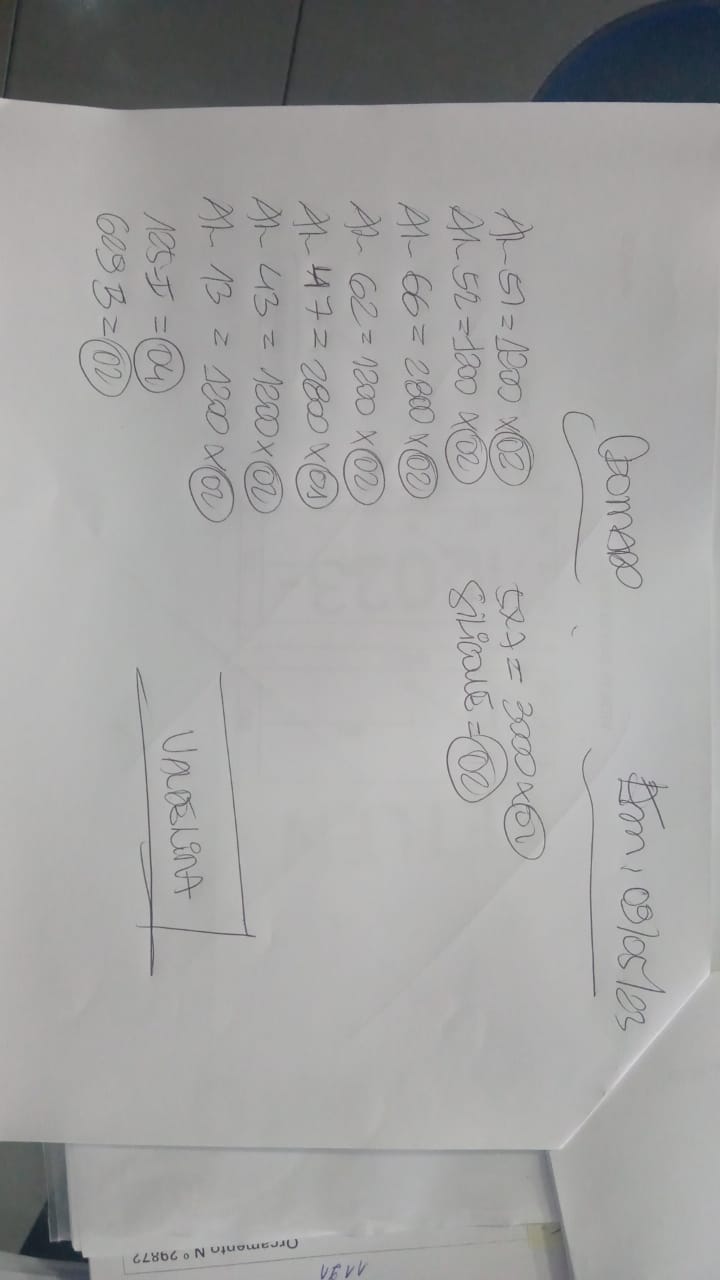 03/05/23
Al 51 = 1200 x 02
Al 52 = 1200 x 02
Al 66 = 2800 x 02
Al 62 = 1200 x 02
Al 47 = 2800 x 01
Al 43 = 1200 x 02
Al 13 = 1200 x 02
125 I = 04
629 B = 02
5x7 = 3000 x 02
SILICONE = 02
Orçamento N° 29872